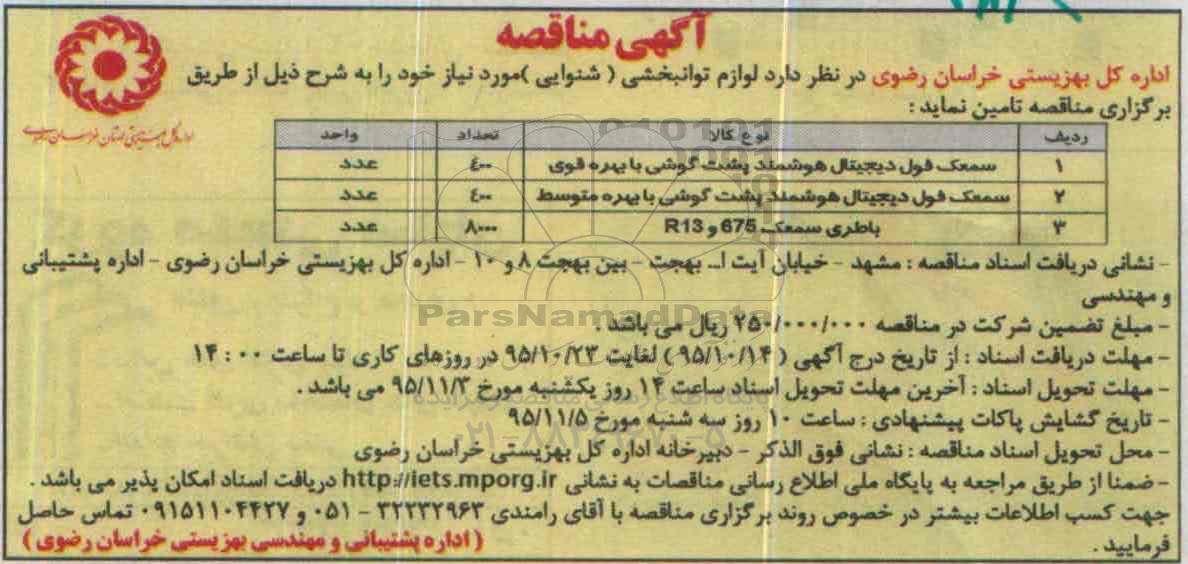 آگهی مناقصه
اداره کل بهزیستی خراسان رضوی در نظر دارد لوازم توانبخشی ( شنوایی )مورد نیاز خود را به شرح ذیل از طریق
برگزاری مناقصه تامین نماید :
ردیف نوع کالا تعداد واحد
۱ سمعک فول دیجیتال هوشمند پشت گوشی با بهره قوی ۴۰۰ عدد
۲ سمعک فول دیجیتال هوشمند پشت گوشی با بهره متوسط ۴۰۰ عدد
۳ باطری سمعک 675 و R13 ۸۰۰۰ عدد
- نشانی دریافت اسناد مناقصه : مشهد - خیابان آیت ا... بهجت - بین بهجت ۸ و ۱۰ - اداره کل بهزیستی خراسان رضوی - اداره پشتیبانی
و مهندسی
- مبلغ تضمین شرکت در مناقصه ۲۵۰/۰۰۰/۰۰۰ ریال می باشد .
- مهلت دریافت اسناد : از تاریخ درج آگهی ( ۹۵/۱۰/۱۴ ) لغایت ۹۵/۱۰/۲۳ در روزهای کاری تا ساعت ۰۰ : ۱۴
- مهلت تحویل اسناد : آخرین مهلت تحویل اسناد ساعت ۱۴ روز یکشنبه مورخ ۹۵/۱۱/۳ می باشد .
- تاریخ گشایش پاکات پیشنهادی : ساعت ۱۰ روز سه شنبه مورخ ۹۵/۱۱/۵
- محل تحویل اسناد مناقصه : نشانی فوق الذکر - دبیرخانه اداره کل بهزیستی خراسان رضوی
- ضمنا از طریق مراجعه به پایگاه ملی اطلاع رسانی مناقصات به نشانی http://iets.mporg.ir دریافت اسناد امکان پذیر می باشد .
جهت کسب اطلاعات بیشتر در خصوص روند برگزاری مناقصه با آقای رامندی ۳۲۲۳۲۹۶۳ - ۰۵۱ و ۰۹۱۵۱۱۰۴۴۲۷ تماس حاصل
فرمایید .
( اداره پشتیبانی و مهندسی بهزیستی خراسان رضوی )
ParsNamadData